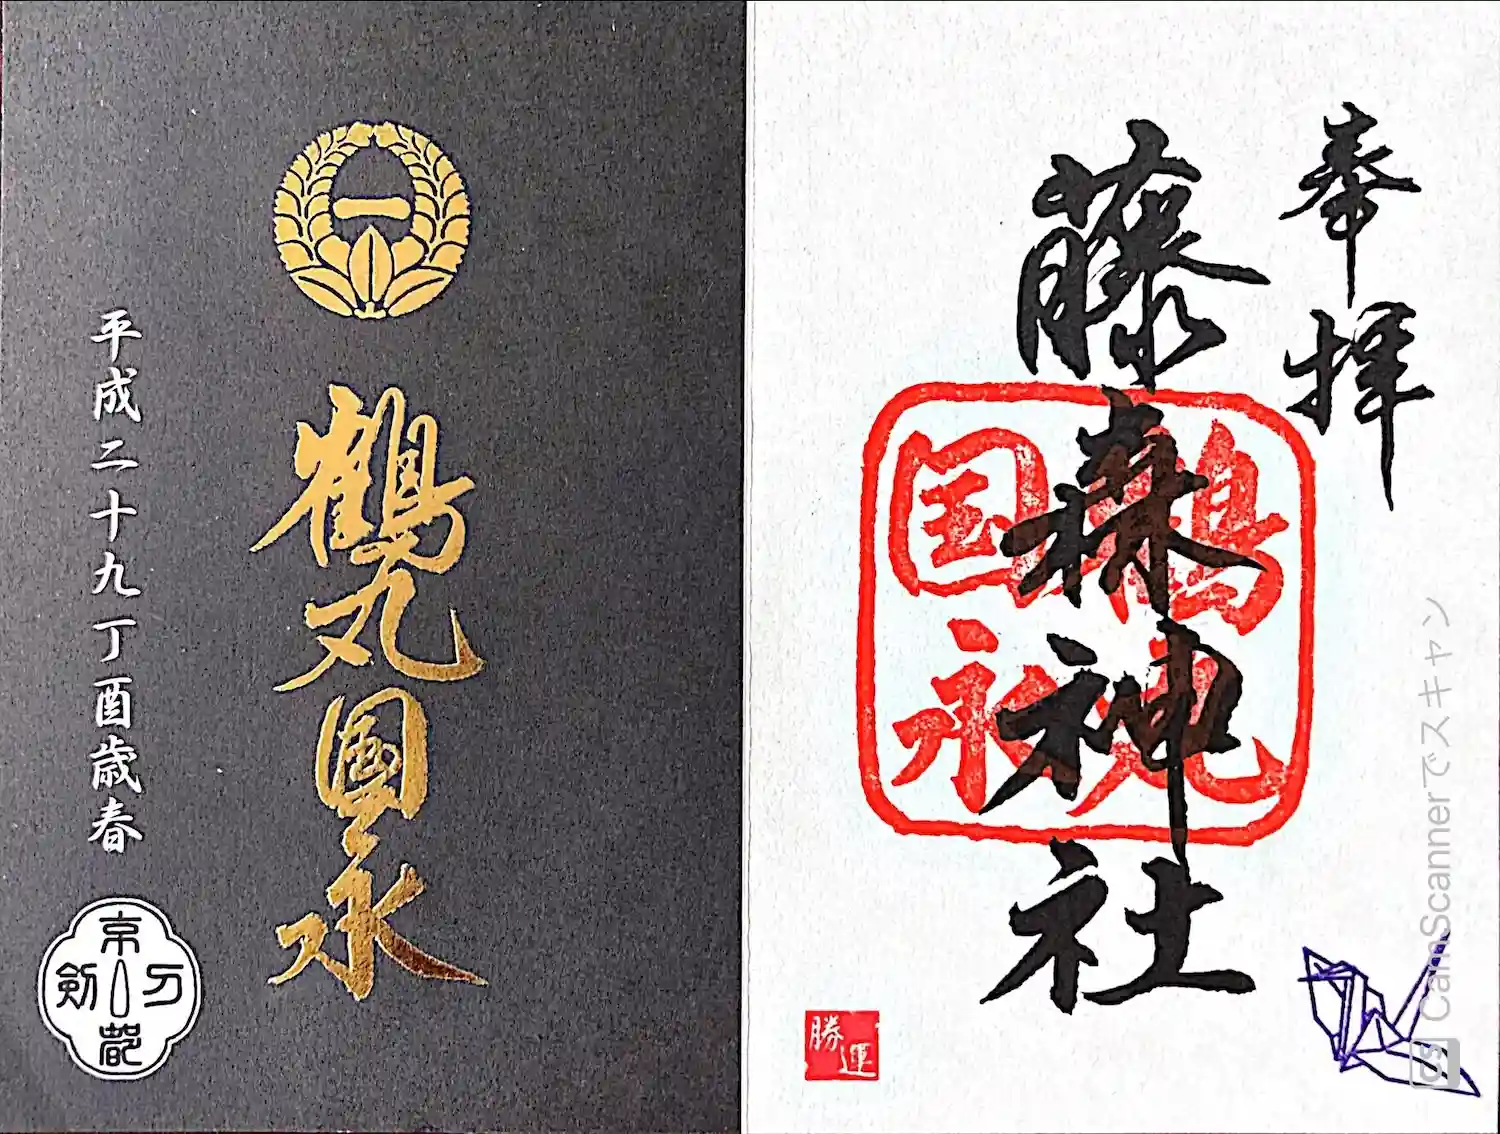 奉拝
藤森神社
鶴丸
国永
勝運
鶴丸国永
平成二十九丁酉歳春
京都
刀剣
CS CamScannerでスキャン